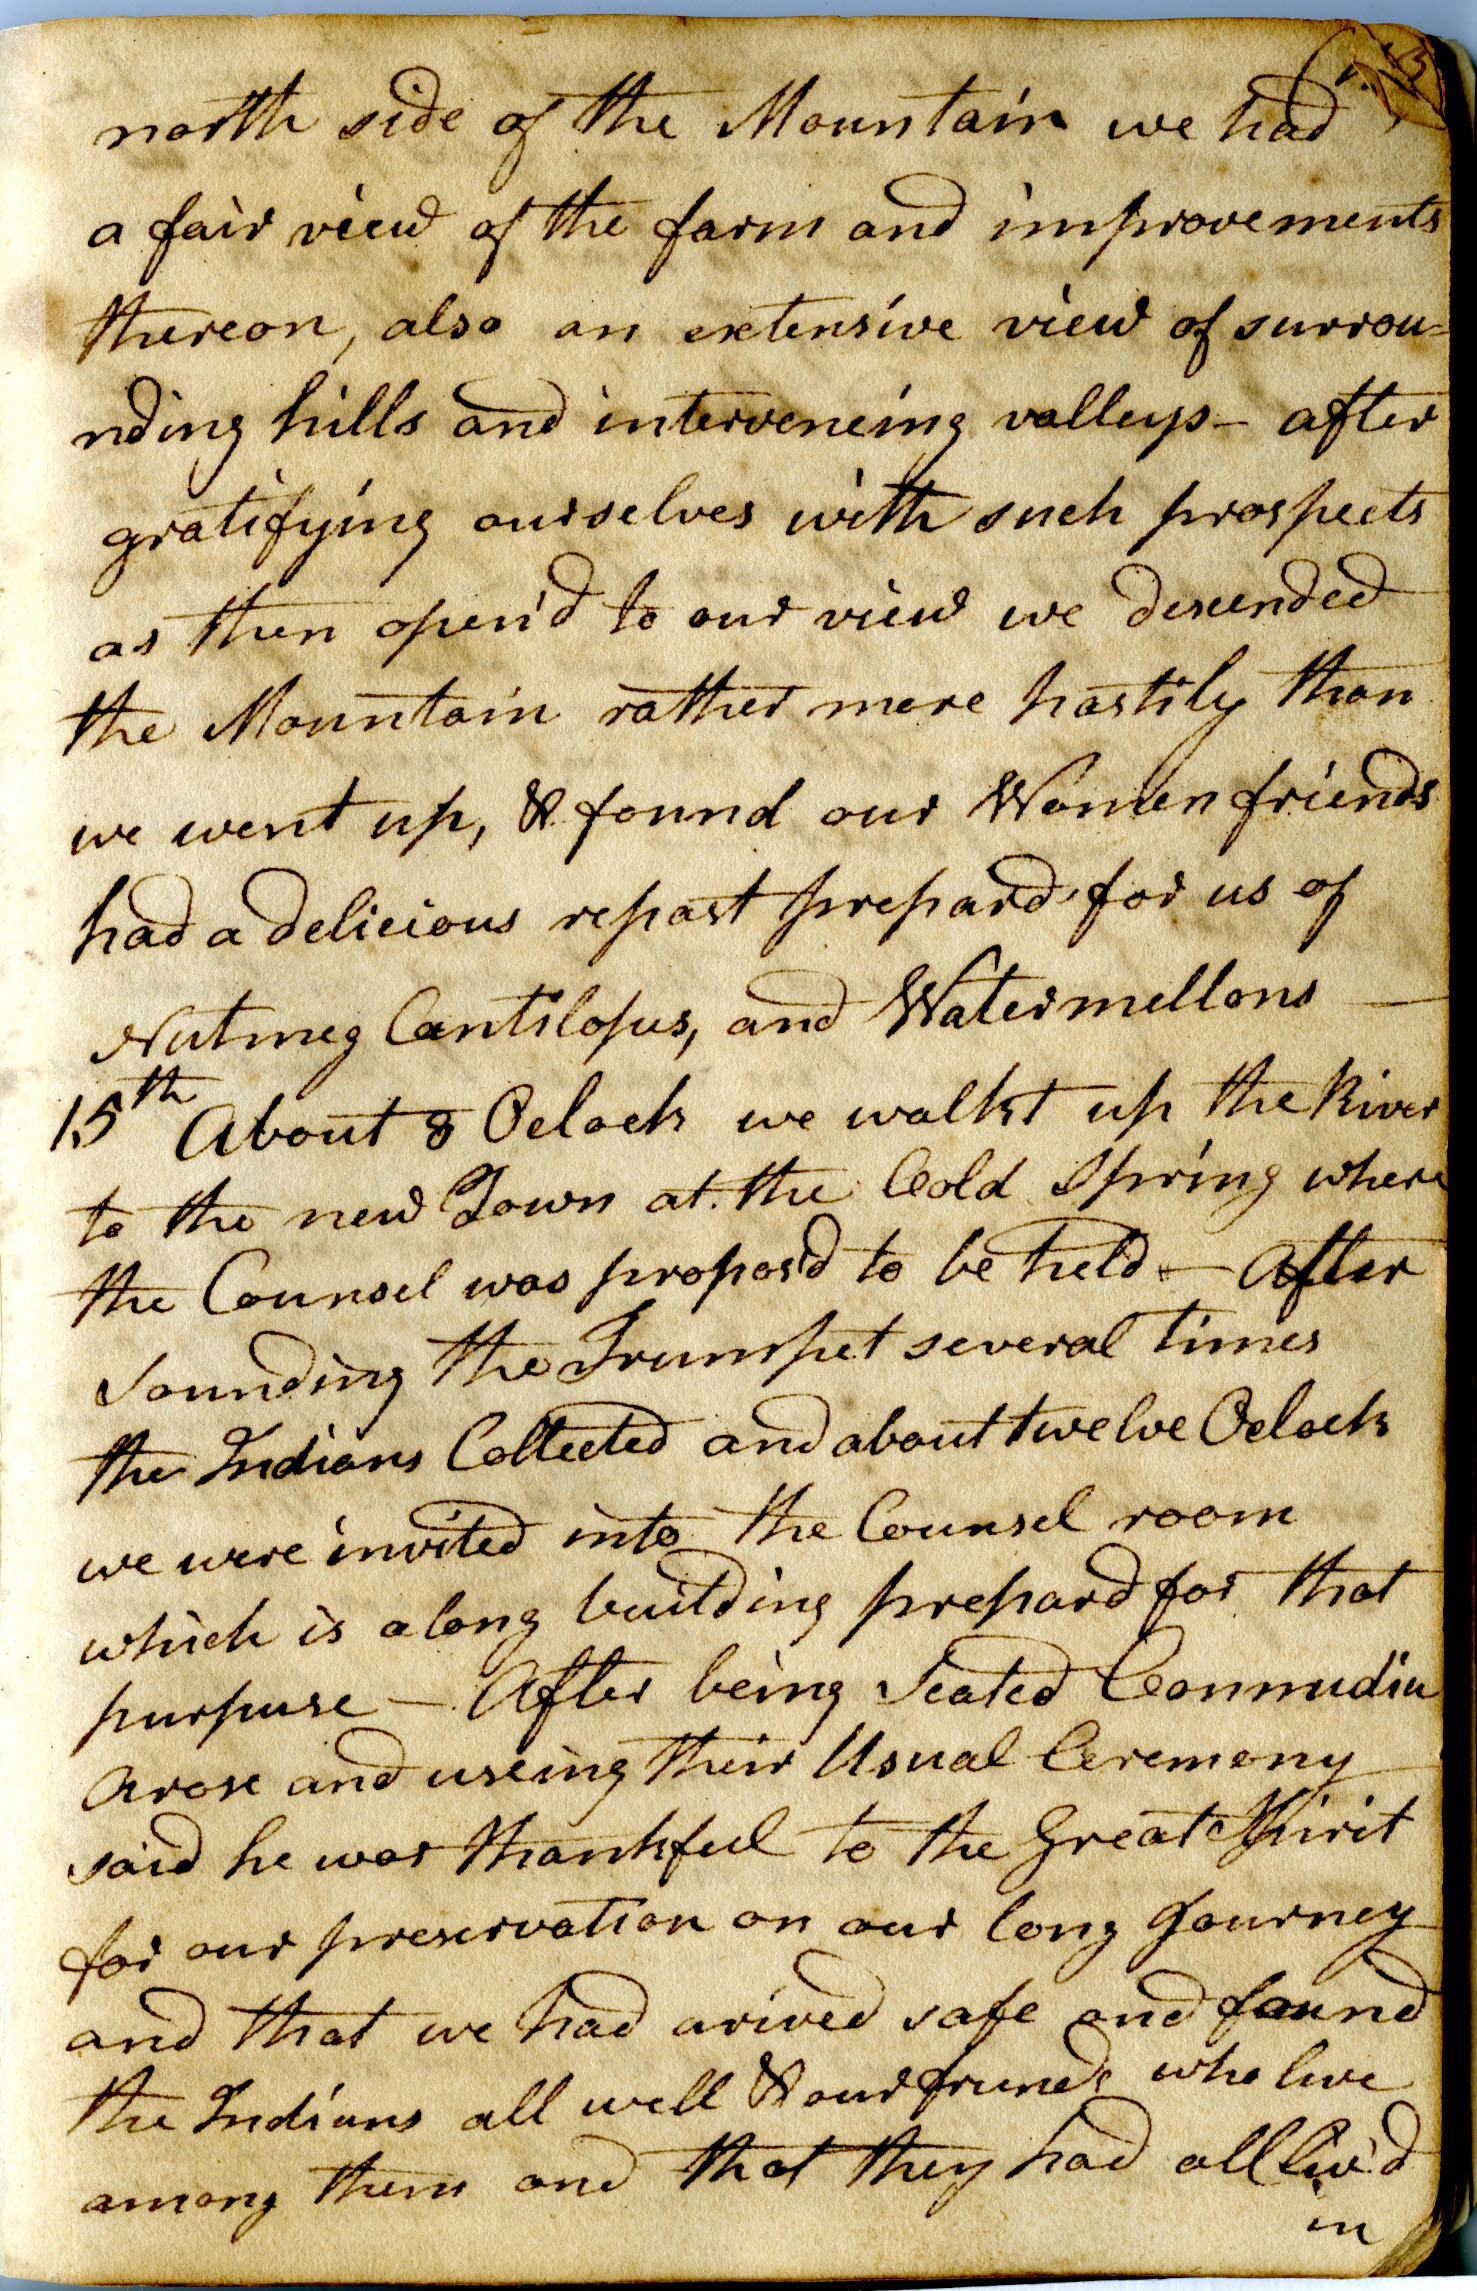 north side of the Mountain we had
a fair view of the farm and improvements
thereon, also an extensive view of surrou=
nding hills and interveneing valleys - after
gratifying ourselves with such prospects
as then open'd to our view we descended
the Mountain rather more hastily than
we went up, & found our Women friends
had a delicious repast prepard for us of
Nutmeg Cantilopes, and Watermellons
15th About 8 Oclock we walkt up the River
to the new Town at the Cold Spring where
the Counsel was propos'd to be held - After
sounding the Trumpet several times
the Indians Collected and about twelve Oclock
we were invited into the Counsel room
which is a long building prepard for that
purpuse - After being Seated Connudiu
arose and useing their Usual Ceremony
said he was thankful to the Great Spirit
for our preservation on our long Journey
and that we had arived safe and found
the Indians all well & our friends who live
among them and that they had all liv'd
in